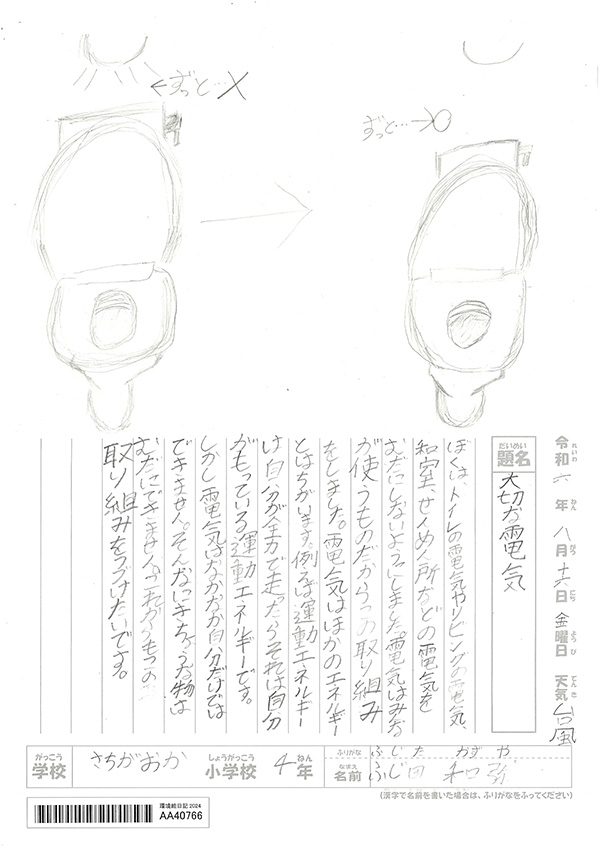 ←ずっと…×
ずっと…→○
れいわ ねん がつ にち ようび てんき
令和六年八月十六日金曜日天気台風
だいめい
題名
大切な電気
ぼくは、トイレの電気やリビングの電気、
和室、せんめん所などの電気を
むだにしないようにしました。電気はみな
が使うものだからこの取り組み
をしました。電気はほかのエネルギー
とはちがいます。例えば運動エネルギー
は自分が全力で走ったらそれは自分
がもっている運動エネルギーです。
しかし電気はなかなか自分だけでは
できません。そんなにきちょうな物は
むだにできません。これからもこの
取り組みをつづけたいです。
がっこう しょうがっこう ねん
学校 さちがおか 小学校 4年
ふりがな ふじた かずや
なまえ
名前 ふじ田 和弥
(漢字で名前を書いた場合は、ふりがなをふってください)
環境絵日記 2024
AA40766